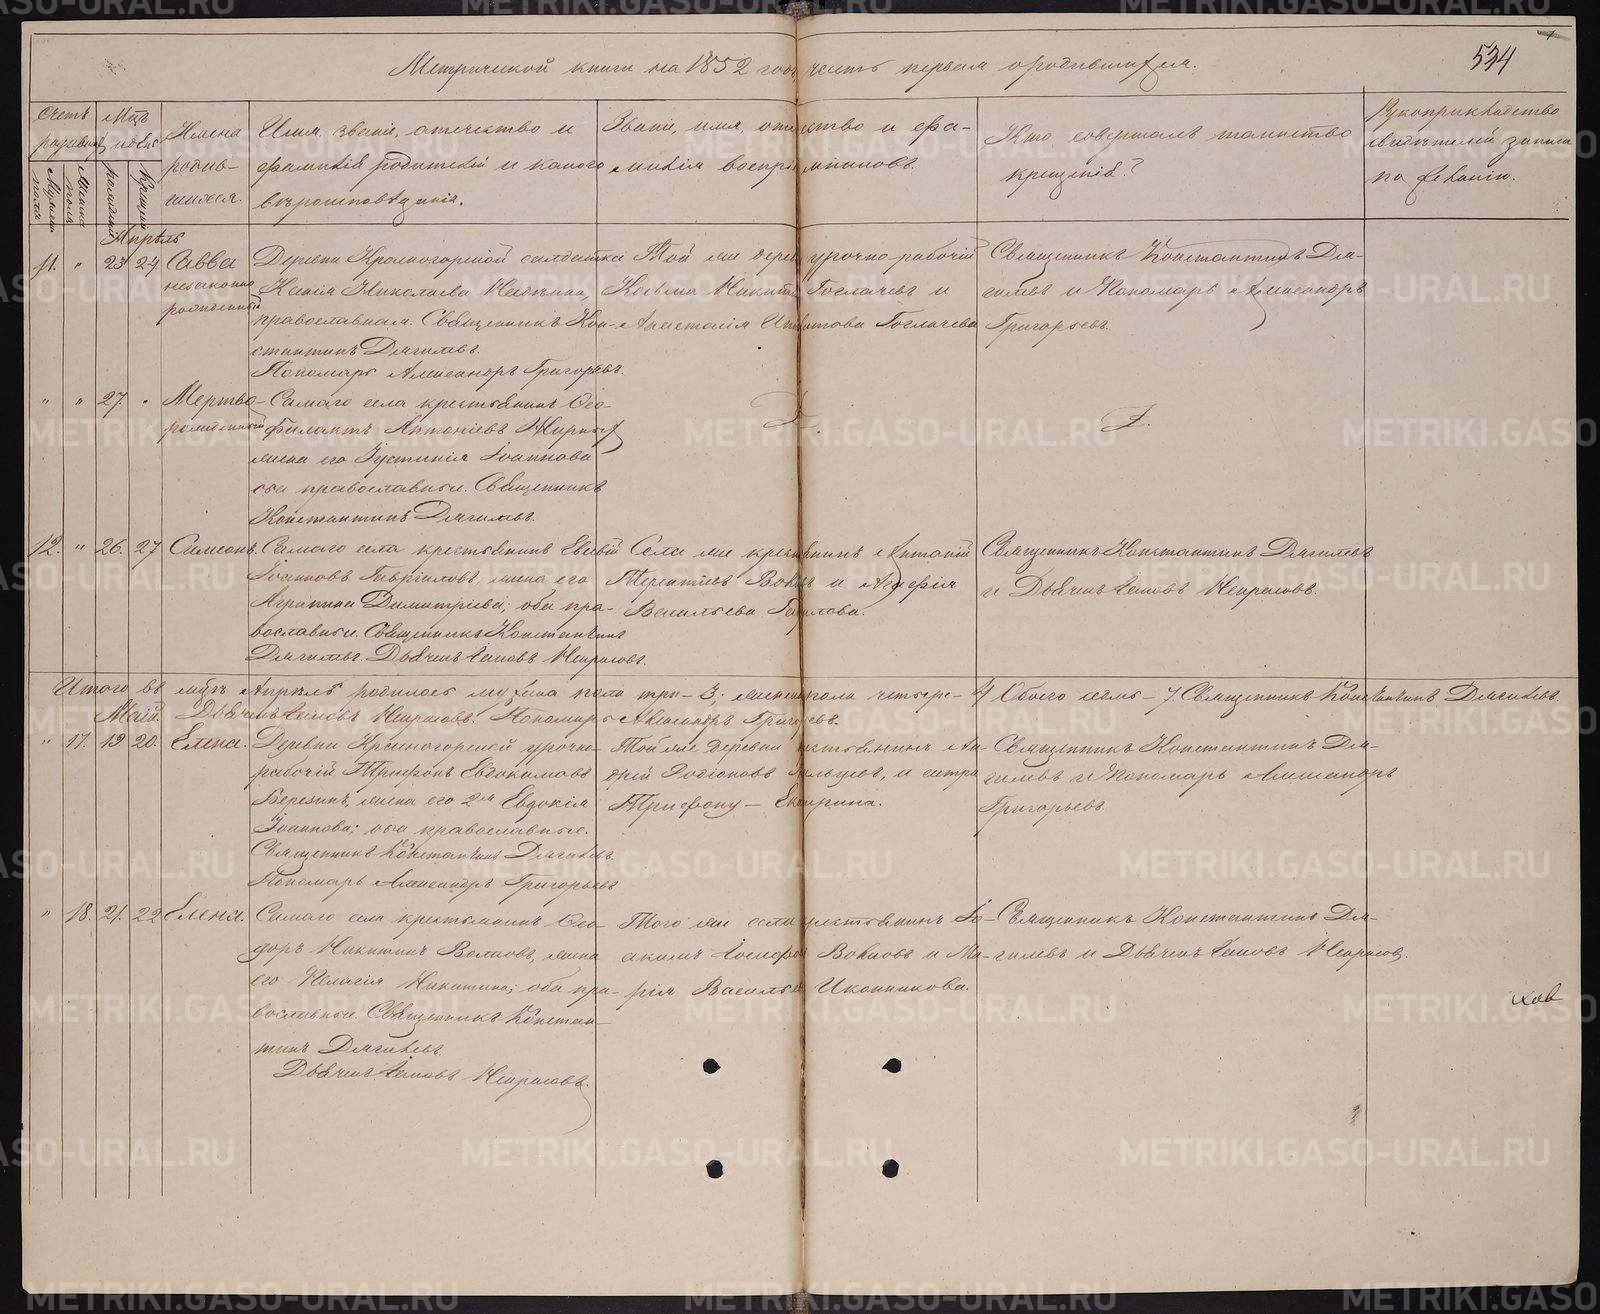 534
Метрической книги на 1852 годъ часть первая о родившихся.
Счетъ родившихся
Мужеска пола
Женска пола
Мѣсяцъ и день
рожденія
крещенія
Имена
родив-
шихся.
Имя, званіе, отечество и
фамилія родителей и какого
вѣроисповѣданія.
Званіе, имя, отечество и фа-
милія воспріемниковъ.
Кто совершалъ таинство
крещенія?
Рукоприкладство
свидѣтелей записи
по желанію.
Апрѣль
11. " 23 24 Савва
незаконно
рожденный
Деревни Красногорской солдатка
Ксенія Николаева
православная. Священникъ Кон-
стантинъ Дягилевъ.
Пономарь Александръ Григорьевъ.
Той же деревни урочно-рабочій
Косьма Никитинъ и
Анастасія
Священникъ Константинъ Дя-
гилевъ и Пономарь Александръ
Григорьевъ.
" " 27. " Мертво-
рожденный
Самаго села крестьянинъ Ѳео-
филактъ Антоніевъ
жена его Іустинія Іоаннова
оба православные. Священникъ
Константинъ Дягилевъ.
12. " 26. 27 Симеонъ.
Самаго села крестьянинъ Евсевій
Іоанновъ Гавриловъ, жена его
Агрипина Димитріева; оба пра-
вославные. Священникъ Константинъ
Дягилевъ. Дьячекъ Іаковъ Некрасовъ.
Села же крестьянинъ Антоній
Терентіевъ и
Васильева
Священникъ Константинъ Дягилевъ
и Дьячекъ Іаковъ Некрасовъ.
Итого въ мѣсяцѣ Апрѣлѣ родилось мужеска пола три - 3; женска пола четыре - 4 Обоего семь - 7. Священникъ Константинъ Дягилевъ.
Дьячекъ Іаковъ Некрасовъ. Пономарь Александръ Григорьевъ.
Май.
" 17. 19 20. Елена.
Деревни Красногорской урочно-
рабочій Трифонъ Евдокимовъ
Березинъ, жена его 2я Евдокія
Іоаннова; оба православные.
Священникъ Константинъ Дягилевъ.
Пономарь Александръ Григорьевъ
Той же деревни крестьянинъ
Родіоновъ и сестра
Трифону - Екатерина.
Священникъ Константинъ Дя-
гилевъ и Пономарь Александръ
Григорьевъ.
" 18. 21. 22 Елена.
Самаго села крестьянинъ Ѳео-
доръ Никитинъ Волковъ, жена
его Пелагія Никитина; оба пра-
вославные. Священникъ Констан-
тинъ Дягилевъ.
Дьячекъ Іаковъ Некрасовъ.
Того же села крестьянинъ Іо-
акимъ Іосифовъ Волковъ и Ма-
рія Васильева Иконникова.
Священникъ Константинъ Дя-
гилевъ и Дьячекъ Іаковъ Некрасовъ.
METRIKI.GASO-URAL.RU